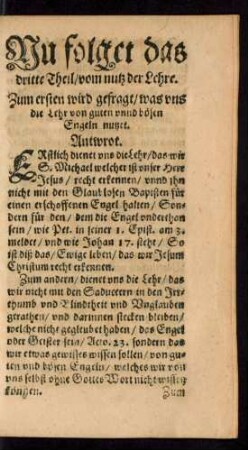 Nu folget das
dritte Theil/vom nutz der Lehre.
Zum ersten wird gefragt/was vns
die Lehr von guten vnnd bösen
Engeln nutzet.
Antwrot.
ERstlich dienet vns die Lehr/das wir
S. Michael welcher ist vnser Herr
Jesus/recht erkennen/vnnd jhn
nicht mit den Glaublosen Bapisten für
einen erschaffenen Engel halten/Son-
dern für den/dem die Engel vnderthon
sein/wie Pet. in seiner 1. Epist. am 3.
meldet/vnd wie Johan 17. steht/So
ist diß das/Ewige leben/das wir Jesum
Christum recht erkennen.
Zum andern/dienet vns die Lehr/das
wir nicht mit den Saduceern in den Jrr-
thumb vnd Blindtheit vnd Vnglauben
gerathen/vnd darinnen stecken bleiben/
welche nicht gegleubet haben/das Engel
oder Geister sein/Acto. 23. sondern das
wir etwas gewisses wissen sollen/von gu-
ten vnd bösen Engeln/welches wir von
vns selbst ohne Gottes Wort nicht wissen
köngen.
Zum